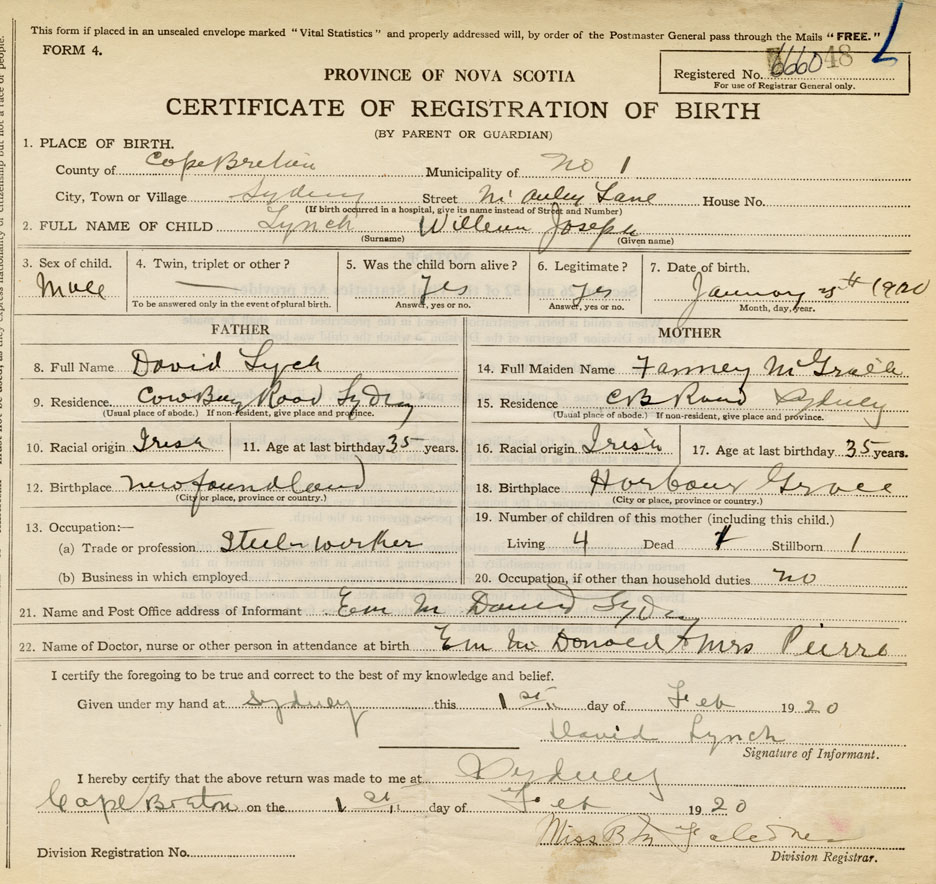 This form if placed in an unsealed envelope marked "Vital Statistics" and properly addressed will, by order of the Postmaster General pass through the Mails "FREE."
FORM 4.
PROVINCE OF NOVA SCOTIA
Registered No. 666048
For use of Registrar General only.
CERTIFICATE OF REGISTRATION OF BIRTH
(BY PARENT OR GUARDIAN)
1. PLACE OF BIRTH.
County of Cape Breton Municipality of No 1
City, Town or Village Sydney Street McAuley Lane House No.
(If birth occurred in a hospital, give its name instead of Street and Number)
2. FULL NAME OF CHILD Lynch William Joseph
(Surname) (Given name)
3. Sex of child. 4. Twin, triplet or other? 5. Was the child born alive? 6. Legitimate? 7. Date of birth.
Male — Yes Yes January 5th 1920
To be answered only in the event of plural birth. Answer, yes or no. Answer, yes or no. Month, day, year.
FATHER MOTHER
8. Full Name David Lych 14. Full Maiden Name Fanney McGrath
9. Residence Cow Bay Road Sydney 15. Residence CB Road Sydney
(Usual place of abode.) If non-resident, give place and province. (Usual place of abode.) If non-resident, give place and province.
10. Racial origin Irish 11. Age at last birthday 35 years. 16. Racial origin Irish 17. Age at last birthday 35 years.
12. Birthplace Newfoundland 18. Birthplace Harbour Grace
(City or place, province or country.) (City or place, province or country.)
13. Occupation:— 19. Number of children of this mother (including this child.)
(a) Trade or profession Steel worker Living 4 Dead Stillborn 1
(b) Business in which employed 20. Occupation, if other than household duties no
21. Name and Post Office address of Informant Em M Sydney
22. Name of Doctor, nurse or other person in attendance at birth Em McDonald & Mrs
I certify the foregoing to be true and correct to the best of my knowledge and belief.
Given under my hand at Sydney this 1st day of Feb 1920
David Lynch
Signature of Informant.
I hereby certify that the above return was made to me at Sydney
Cape Breton on the 1st day of Feb 1920
Miss B M
Division Registration No. Division Registrar.